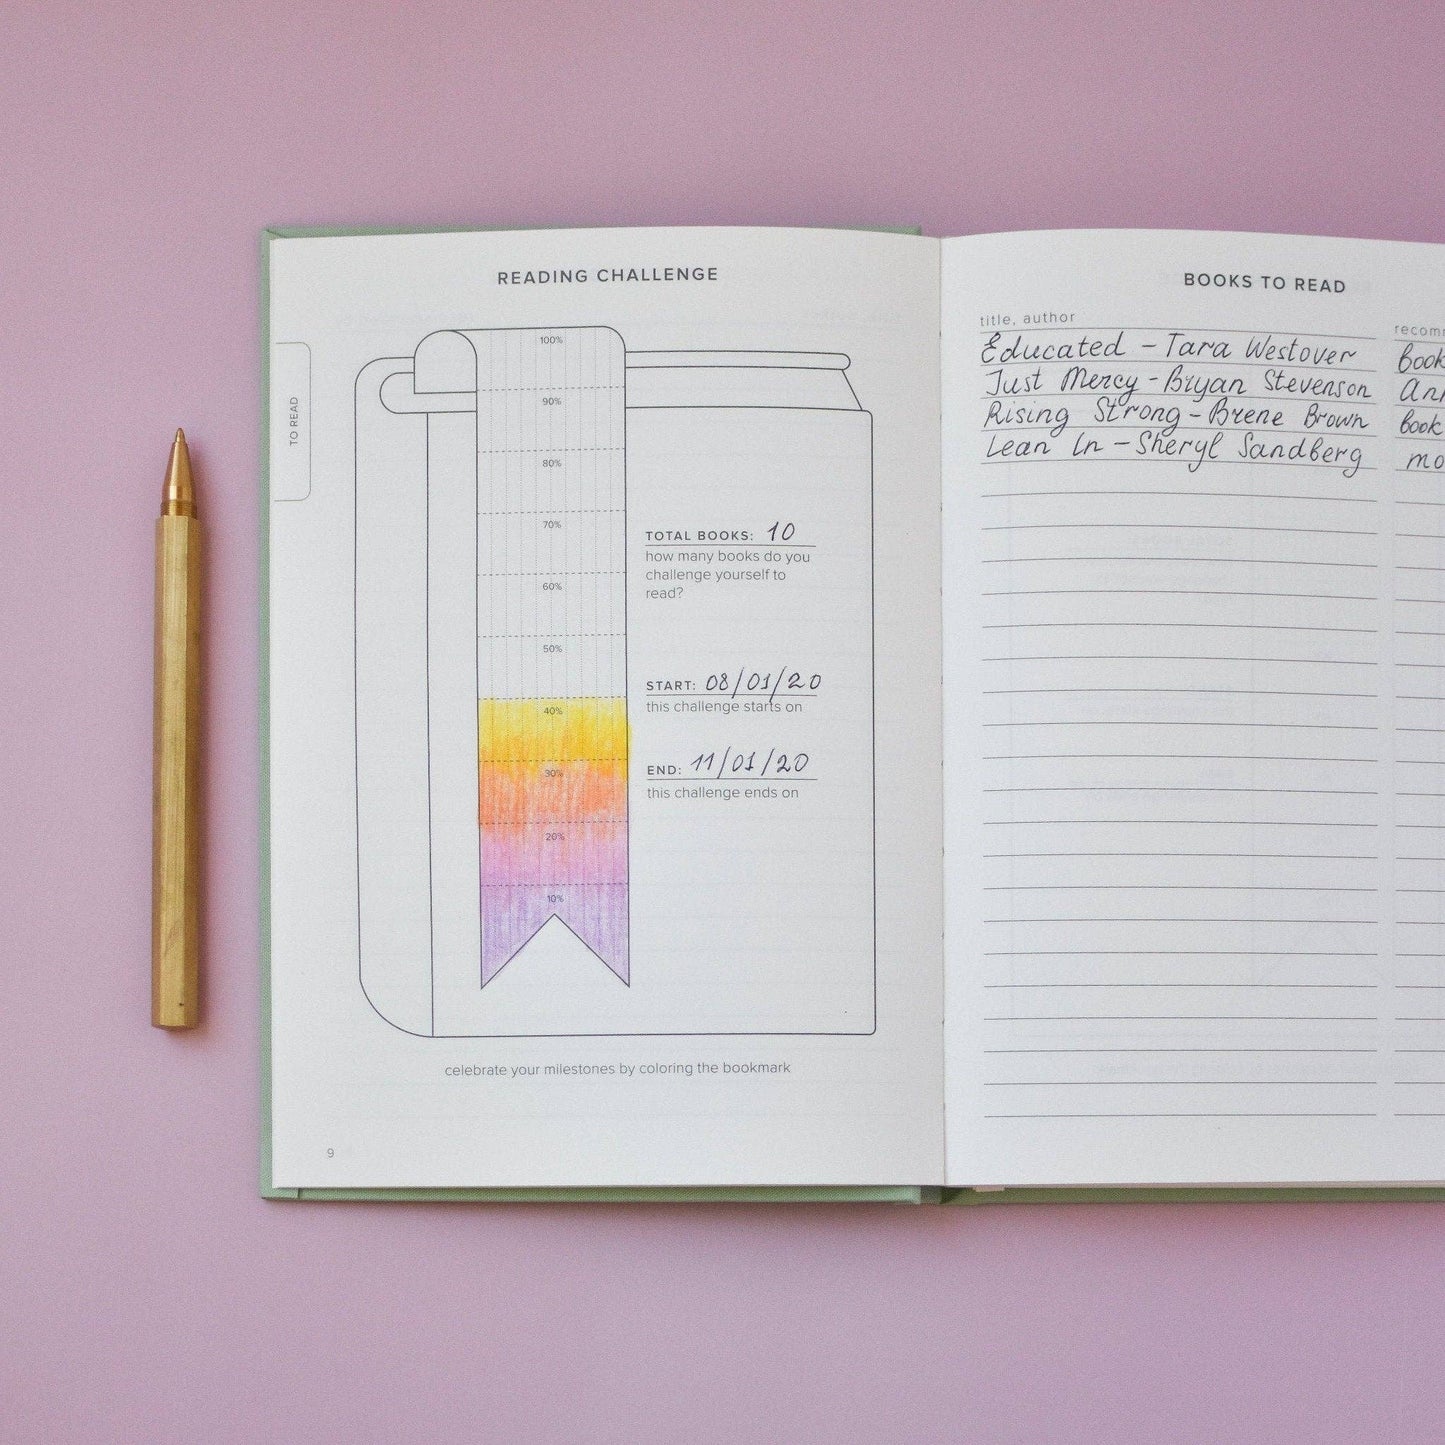 READING CHALLENGE
TO READ
100%
90%
80%
70%
60%
50%
40%
30%
20%
10%
TOTAL BOOKS: 10
how many books do you
challenge yourself to
read?
START: 08/01/20
this challenge starts on
END: 11/01/20
this challenge ends on
celebrate your milestones by coloring the bookmark
9
BOOKS TO READ
title, author
Educated - Tara Westover
Just Mercy - Bryan Stevenson
Rising Strong - Brene Brown
Lean In - Sheryl Sandberg
recom
Book
book
mo